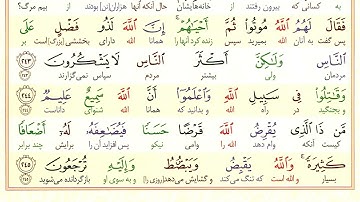 به کسانی که بیرون رفتند از خانه‌هایشان حال آنکه آنها هزاران [تن] بودند از بیم مرگ؟
فَقَالَ لَهُمُ ٱللَّهُ مُوتُوا۟ ثُمَّ أَحْيَـٰهُمْ ۚ إِنَّ ٱللَّهَ لَذُو فَضْلٍ عَلَى
پس گفت به آنان الله بمیرید سپس زنده کرد آنها را همانا الله دارای بخششی [بزرگ] است بر
ٱلنَّاسِ وَلَـٰكِنَّ أَكْثَرَ ٱلنَّاسِ لَا يَشْكُرُونَ ٢٤٣
مردمان ولی بیشتر مردم سپاس نمی‌گزارند
وَقَـٰتِلُوا۟ فِى سَبِيلِ ٱللَّهِ وَٱعْلَمُوٓا۟ أَنَّ ٱللَّهَ سَمِيعٌ عَلِيمٌ ٢٤٤
و بجنگید در راه الله و بدانید که همانا الله شنوای داناست
مَّن ذَا ٱلَّذِى يُقْرِضُ ٱللَّهَ قَرْضًا حَسَنًا فَيُضَـٰعِفَهُۥ لَهُۥٓ أَضْعَافًا
کیست آن که وام دهد الله را وامی نیکو پس افزاید آن را برایش چند برابر
كَثِيرَةً ۚ وَٱللَّهُ يَقْبِضُ وَيَبْصُۜطُ وَإِلَيْهِ تُرْجَعُونَ ٢٤٥
بسیار و الله است که تنگ می‌کند و گشایش می‌دهد [روزی را] و به سوی او بازگردانده می‌شوید